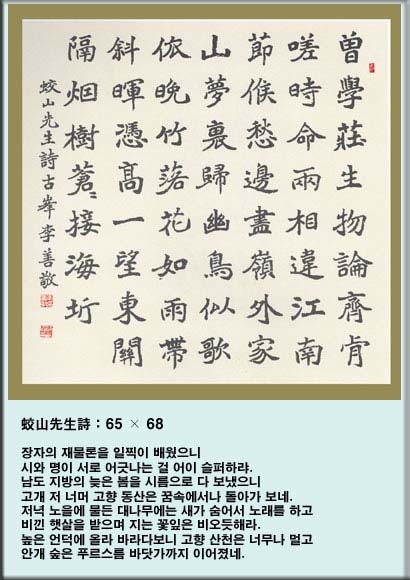 曾學莊生物論齊肯
嗟時命兩相違江南
節候愁邊盡嶺外家
山夢裏歸幽鳥似歌
依晩竹落花如雨帶
斜暉憑高一望東關
隔烟樹蒼〻接海圻
蛟山先生詩古峯李善敬
蛟山先生詩 : 65 × 68
장자의 재물론을 일찍이 배웠으니
시와 명이 서로 어긋나는 걸 어이 슬퍼하랴.
남도 지방의 늦은 봄을 시름으로 다 보냈으니
고개 저 너머 고향 동산은 꿈속에서나 돌아가 보네.
저녁 노을에 물든 대나무에는 새가 숨어서 노래를 하고
비낀 햇살을 받으며 지는 꽃잎은 비오듯해라.
높은 언덕에 올라 바라다보니 고향 산천은 너무나 멀고
안개 숲은 푸르스름 바닷가까지 이어졌네.